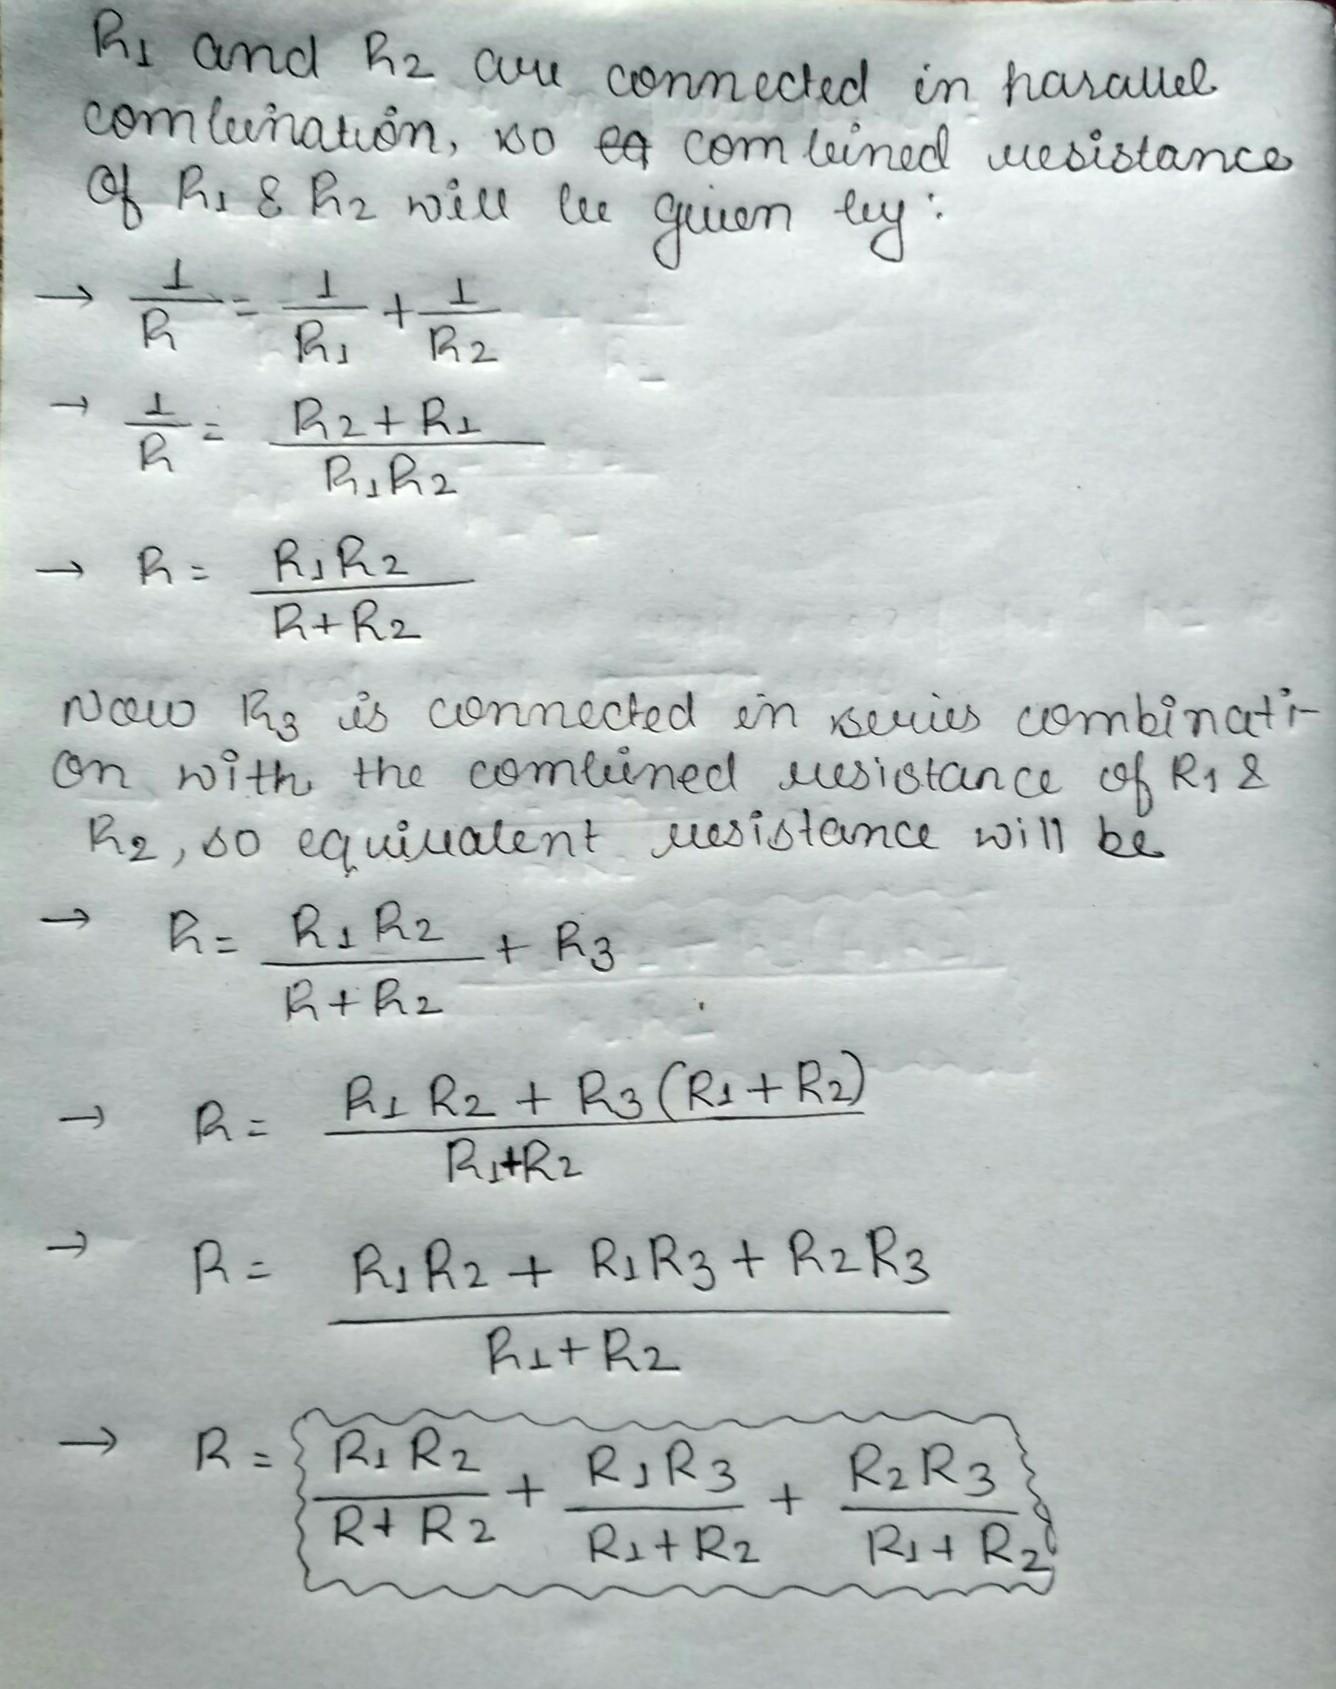 R1 and R2 are connected in parallel
combination, so eq combined resistance
Of R1 & R2 will be given by:
→ 1/R = 1/R1 + 1/R2
→ 1/R = R2+R1/R1R2
→ R = R1R2/R+R2
Now R3 is connected in series combinati-
on with the combined resistance of R1 &
R2, so equivalent resistance will be
→ R = R1R2/R+R2 + R3
→ R = R1R2 + R3(R1+R2)/R1+R2
→ R = R1R2 + R1R3 + R2R3/R1+R2
→ R = R1R2/R+R2 + R1R3/R1+R2 + R2R3/R1+R2